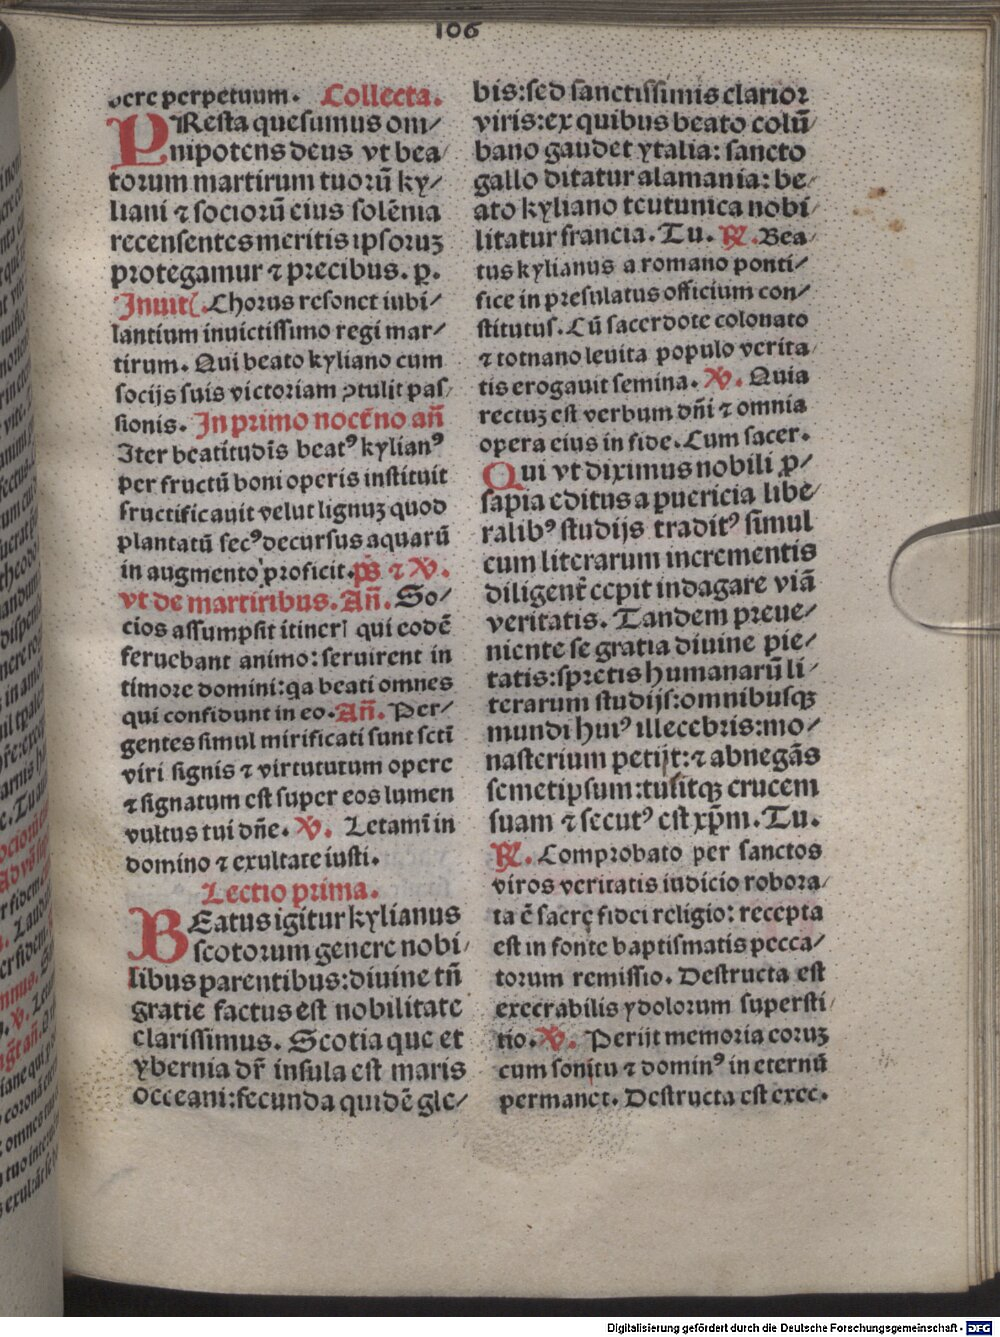 106
bere perpetuum. Collecta.
PResta quesumus om/
nipotens deus vt bea/
torum martirum tuorū ky/
liani ⁊ sociorū eius solēnia
recensentes meritis ipsoruʒ
protegamur ⁊ precibus. p.
Inuit. Chorus resonet iubi/
lantium inuictissimo regi mar/
tirum. Qui beato kyliano cum
socijs suis victoriam ꝯtulit pas/
sionis. In primo noct̄no añ
Iter beatitudīs beatꝰ kylianꝰ
per fructū boni operis instituit
fructificauit velut lignuʒ quod
plantatū secꝰ decursus aquarū
in augmento proficit. p̄s ⁊ V.
vt de martiribus. Añ. So/
cios assumpsit itineri qui eodē
feruebant animo: seruirent in
timore domini: qa beati omnes
qui confidunt in eo. Añ. Per/
gentes simul mirificati sunt scti
viri signis ⁊ virtututum opere
⁊ signatum est super eos lumen
vultus tui dñe. V. Letamī in
domino ⁊ exultate iusti.
Lectio prima.
BEatus igitur kylianus
scotorum genere nobi/
libus parentibus: diuine tñ
gratie factus est nobilitate
clarissimus. Scotia que et
ybernia dr̄ insula est maris
occeani: fecunda quidē gle/
bis: sed sanctissimis clarior
viris: ex quibus beato colū
bano gaudet ytalia: sancto
gallo ditatur alamania: be/
ato kyliano teutunica nobi/
litatur francia. Tu. R. Bea/
tus kylianus a romano ponti/
fice in presulatus officium con/
stitutus. Cū sacerdote colonato
⁊ totnano leuita populo verita/
tis erogauit semina. V. Quia
rectuʒ est verbum dñi ⁊ omnia
opera eius in fide. Cum sacer.
Qui vt diximus nobili ꝓ/
sapia editus a puericia libe/
ralibꝰ studijs traditꝰ simul
cum literarum incrementis
diligent̄ cepit indagare viā
veritatis. Tandem preue/
niente se gratia diuine pie/
tatis: spretis humanarū li/
terarum studijs: omnibusqʒ
mundi huiꝰ illecebris: mo/
nasterium petijt: ⁊ abnegās
semetipsum: tulitqʒ crucem
suam ⁊ secutꝰ est xp̄m. Tu.
R. Comprobato per sanctos
viros veritatis iudicio robora/
ta ē sacre fidei religio: recepta
est in fonte baptismatis pecca/
torum remissio. Destructa est
execrabilis ydolorum supersti/
tio. V. Perijt memoria eoruʒ
cum sonitu ⁊ dominꝰ in eternū
permanet. Destructa est exec.
Digitalisierung gefördert durch die Deutsche Forschungsgemeinschaft - DFG